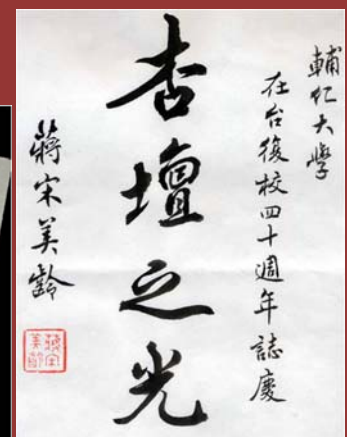 輔仁大學
在台復校四十週年誌慶
杏壇之光
蔣宋美齡
蔣宋美齡